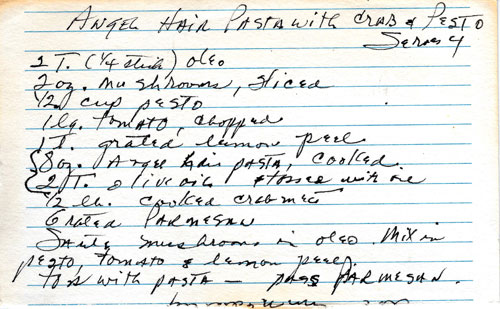 ANGEL HAIR PASTA with CRAB & PESTO
Serves 4
2 T. (1/4 stick) oleo
2 oz. mushrooms, sliced
1/2 cup pesto
1 lg. tomato, chopped
1 t. grated lemon peel
8 oz. Angel hair pasta, cooked
2 T. olive oil tossed with
1/2 lb. cooked crabmeat
Grated PARMESAN
Sauté mushrooms in oleo. Mix in
pesto, tomato & lemon peel.
Toss with PASTA — pass PARMESAN.